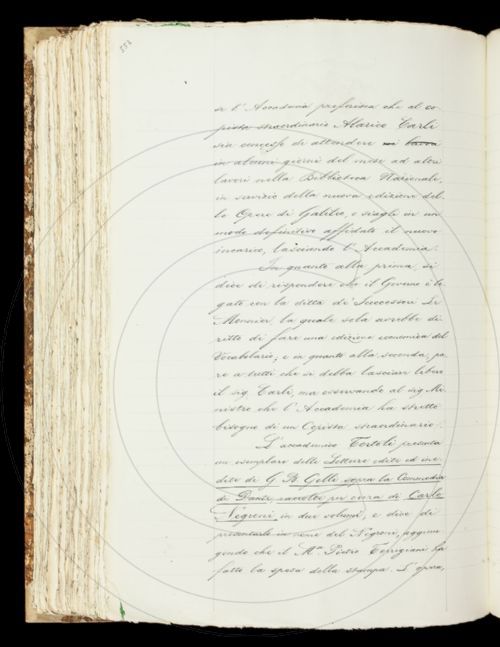 se l'Accademia preferisca che al co-
pista straordinario Alarico Carli
sia concesso di attendere
in alcuni giorni del mese ad altri
lavori nella Biblioteca Nazionale,
in servizio della nuova edizione del-
le Opere di Galileo, o siagli in un
modo definitivo affidato il nuovo
incarico, lasciando l'Accademia.
In quanto alla prima, si
dice di rispondere che il Governo è le-
gato con la ditta di Successori Le
Monnier, la quale sola avrebbe di-
ritto di fare una edizione economica del
Vocabolario; e in quanto alla seconda, pa-
re a tutti che si debba lasciare libero
il sig. Carli, ma osservando al sig. Mi-
nistro che l'Accademia ha stretto
bisogno di un Copista straordinario.
L'accademico Tortoli presenta
un esemplare delle Letture edite ed ine-
dite di G. B. Gelli sopra la Commedia
di Dante, raccolte per cura di Carlo
Negroni in due volumi, e dice di
presentarlo in nome del Negroni, aggiun-
gendo che il Mse Pietro Torrigiani ha
fatto la spesa della stampa. L'opera,